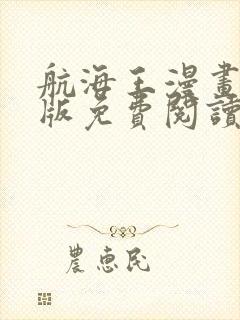 航海王漫畫
版免費閱讀
農惠民